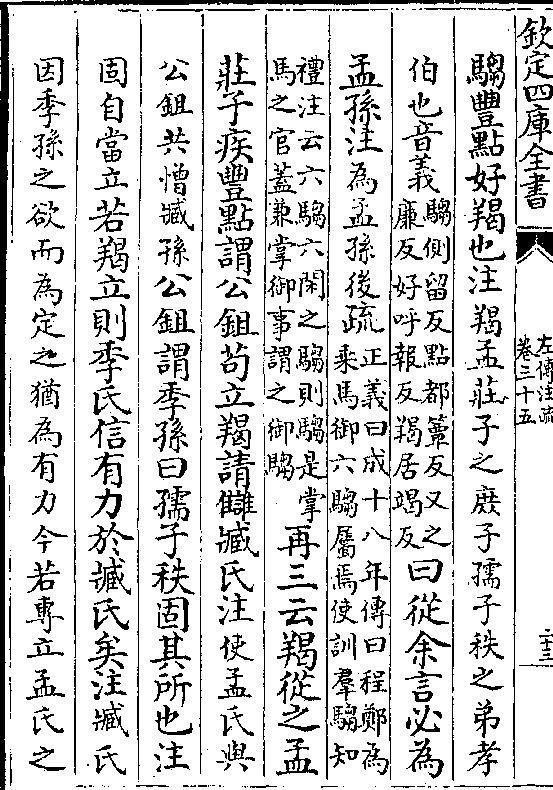 欽定四庫全書
左傳注疏
卷三十五
二十三
騶豐點好羯也注羯孟莊子之庶子孺子秩之弟孝
伯也音義騶側留反點都簟反又之
廉反好呼報反羯居竭反曰從余言必為
孟孫注為孟孫後疏正義曰成十八年傳曰程鄭為
乘馬御六騶屬焉使訓羣騶知
禮注云六騶六閑之騶則騶是掌
馬之官蓋兼掌御事謂之御騶再三云羯從之孟
莊子疾豐點謂公鉏苟立羯請讎臧氏注使孟氏與
公鉏共憎臧孫公鉏謂季孫曰孺子秩固其所也注
固自當立若羯立則季氏信有力於臧氏矣注臧氏
因季孫之欲而為定之猶為有力今若專立孟氏之